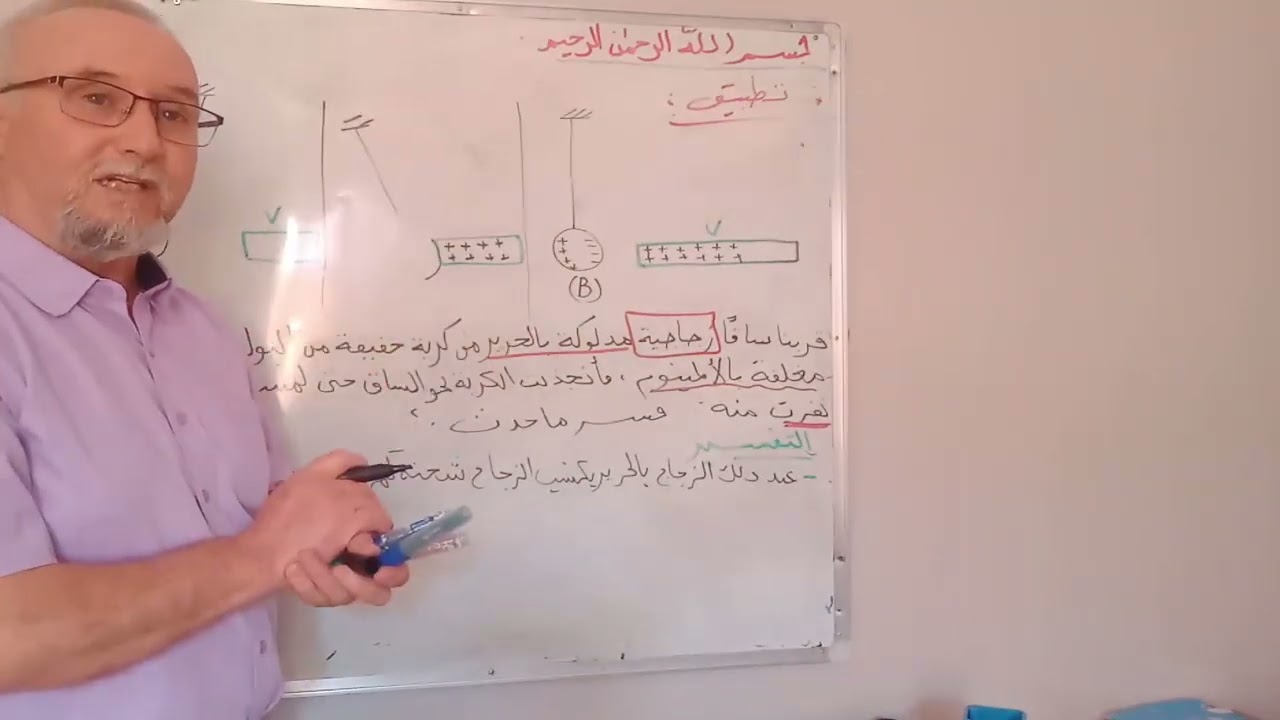 بسم الله الرحمن الرحيم
تطبيق :
V V
+ + + + + + + + + +
+ + + + + + + + + +
(B)
قربنا ساقًا زجاجية مدلوكة بالحرير من كرية خفيفة من
مغلفة بالألمنيوم ، فأنجذبت الكرية نحو الساق حتى
نفرت منه . فسر ما حدث .
التفسير
- عند دلك الزجاج بالحرير يكتسب الزجاج شحنة